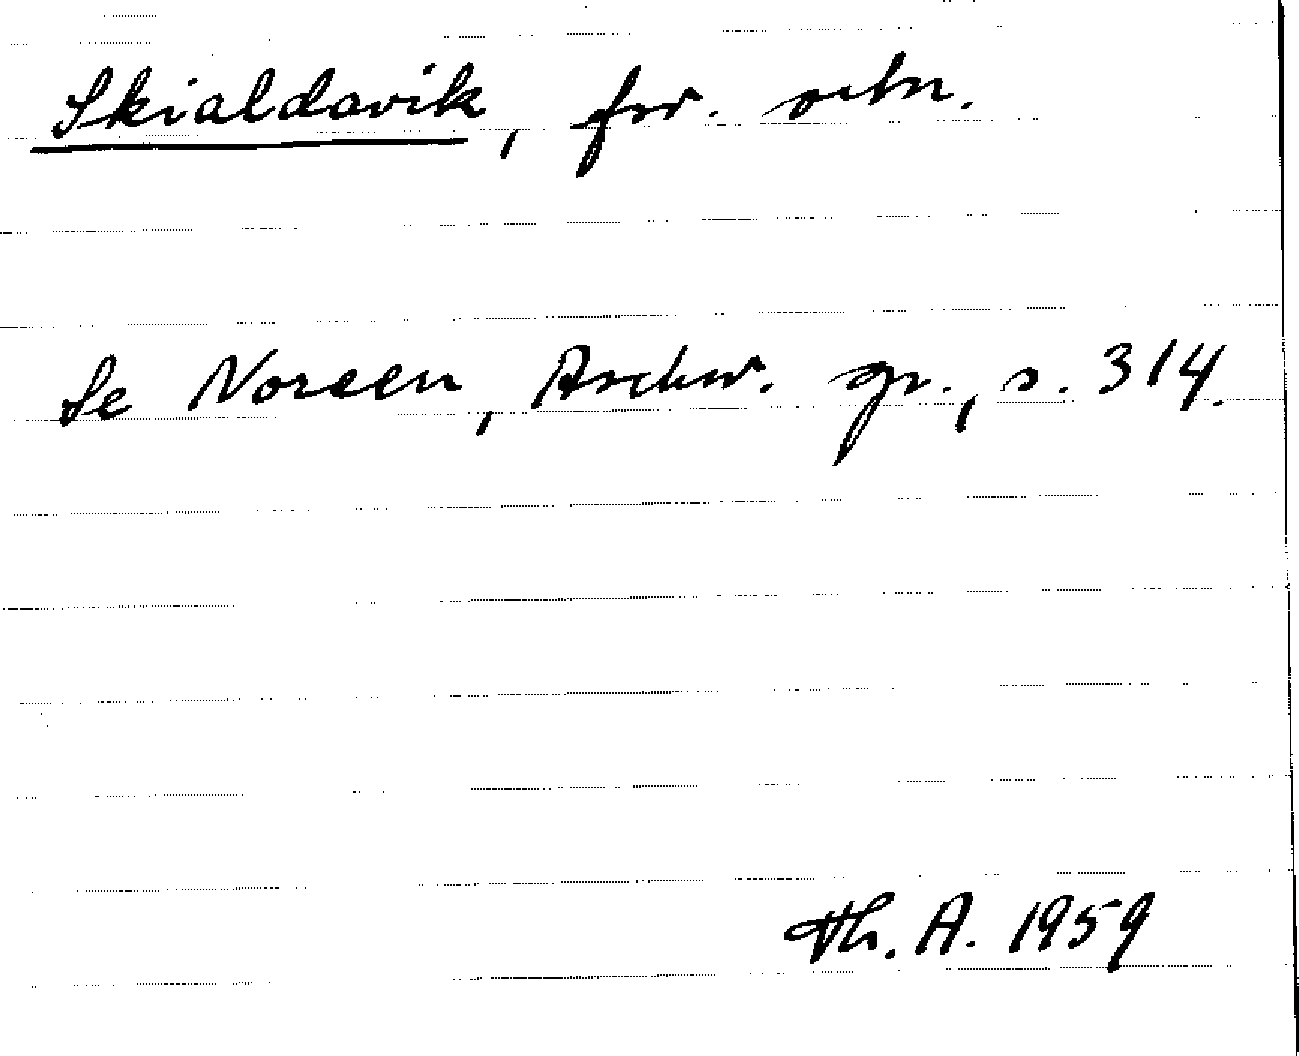 Skialdavik, fsv. ortn.
Se Noreen, Aschw. gr., s. 314.
Th. A. 1959